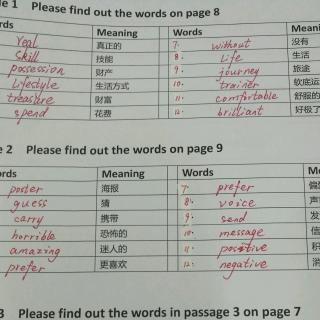 e 1 Please find out the words on page 8
ords Meaning Words Meaning
real 真正的 7. without 没有
skill 技能 8. life 生活
possession 财产 9. journey 旅途
lifestyle 生活方式 10. trainer 软底运
treasure 财富 11. comfortable 舒服的
spend 花费 12. brilliant 好极了
e 2 Please find out the words on page 9
ords Meaning Words Me
poster 海报 7. prefer 偏
guess 猜 8. voice 声
carry 携带 9. send 发
horrible 恐怖的 10. message 信
amazing 迷人的 11. positive 积
prefer 更喜欢 12. negative 消
3 Please find out the words in passage 3 on page 7